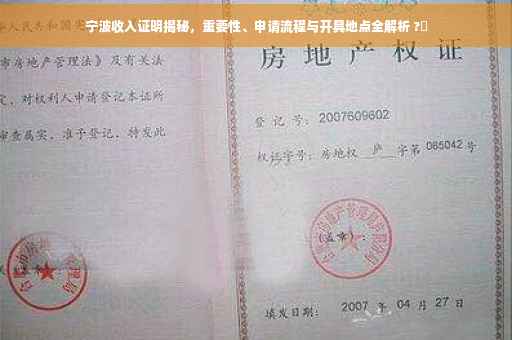 宁波收入证明揭秘，重要性、申请流程与开具地点全解析 ?
人民共和国宪
市房地产管理法》及有关法
定，对权利人申请登记本证所
审查属实，准予登记，特发此
房地产权证
登 记 号：2007609602
权证字号：房地权 庐 字第 085042 号
(盖章)：
填发日期： 2007 年 04 月 27 日